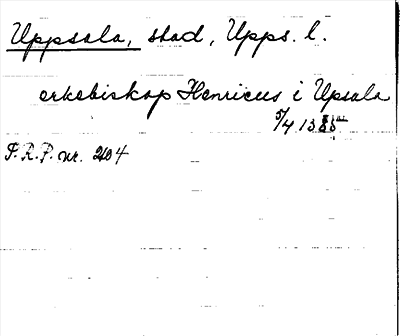 Uppsala, stad, Upps. l.
erkebiskop Henricus i Upsala
5/4 13
P.R.P. nr. 2404